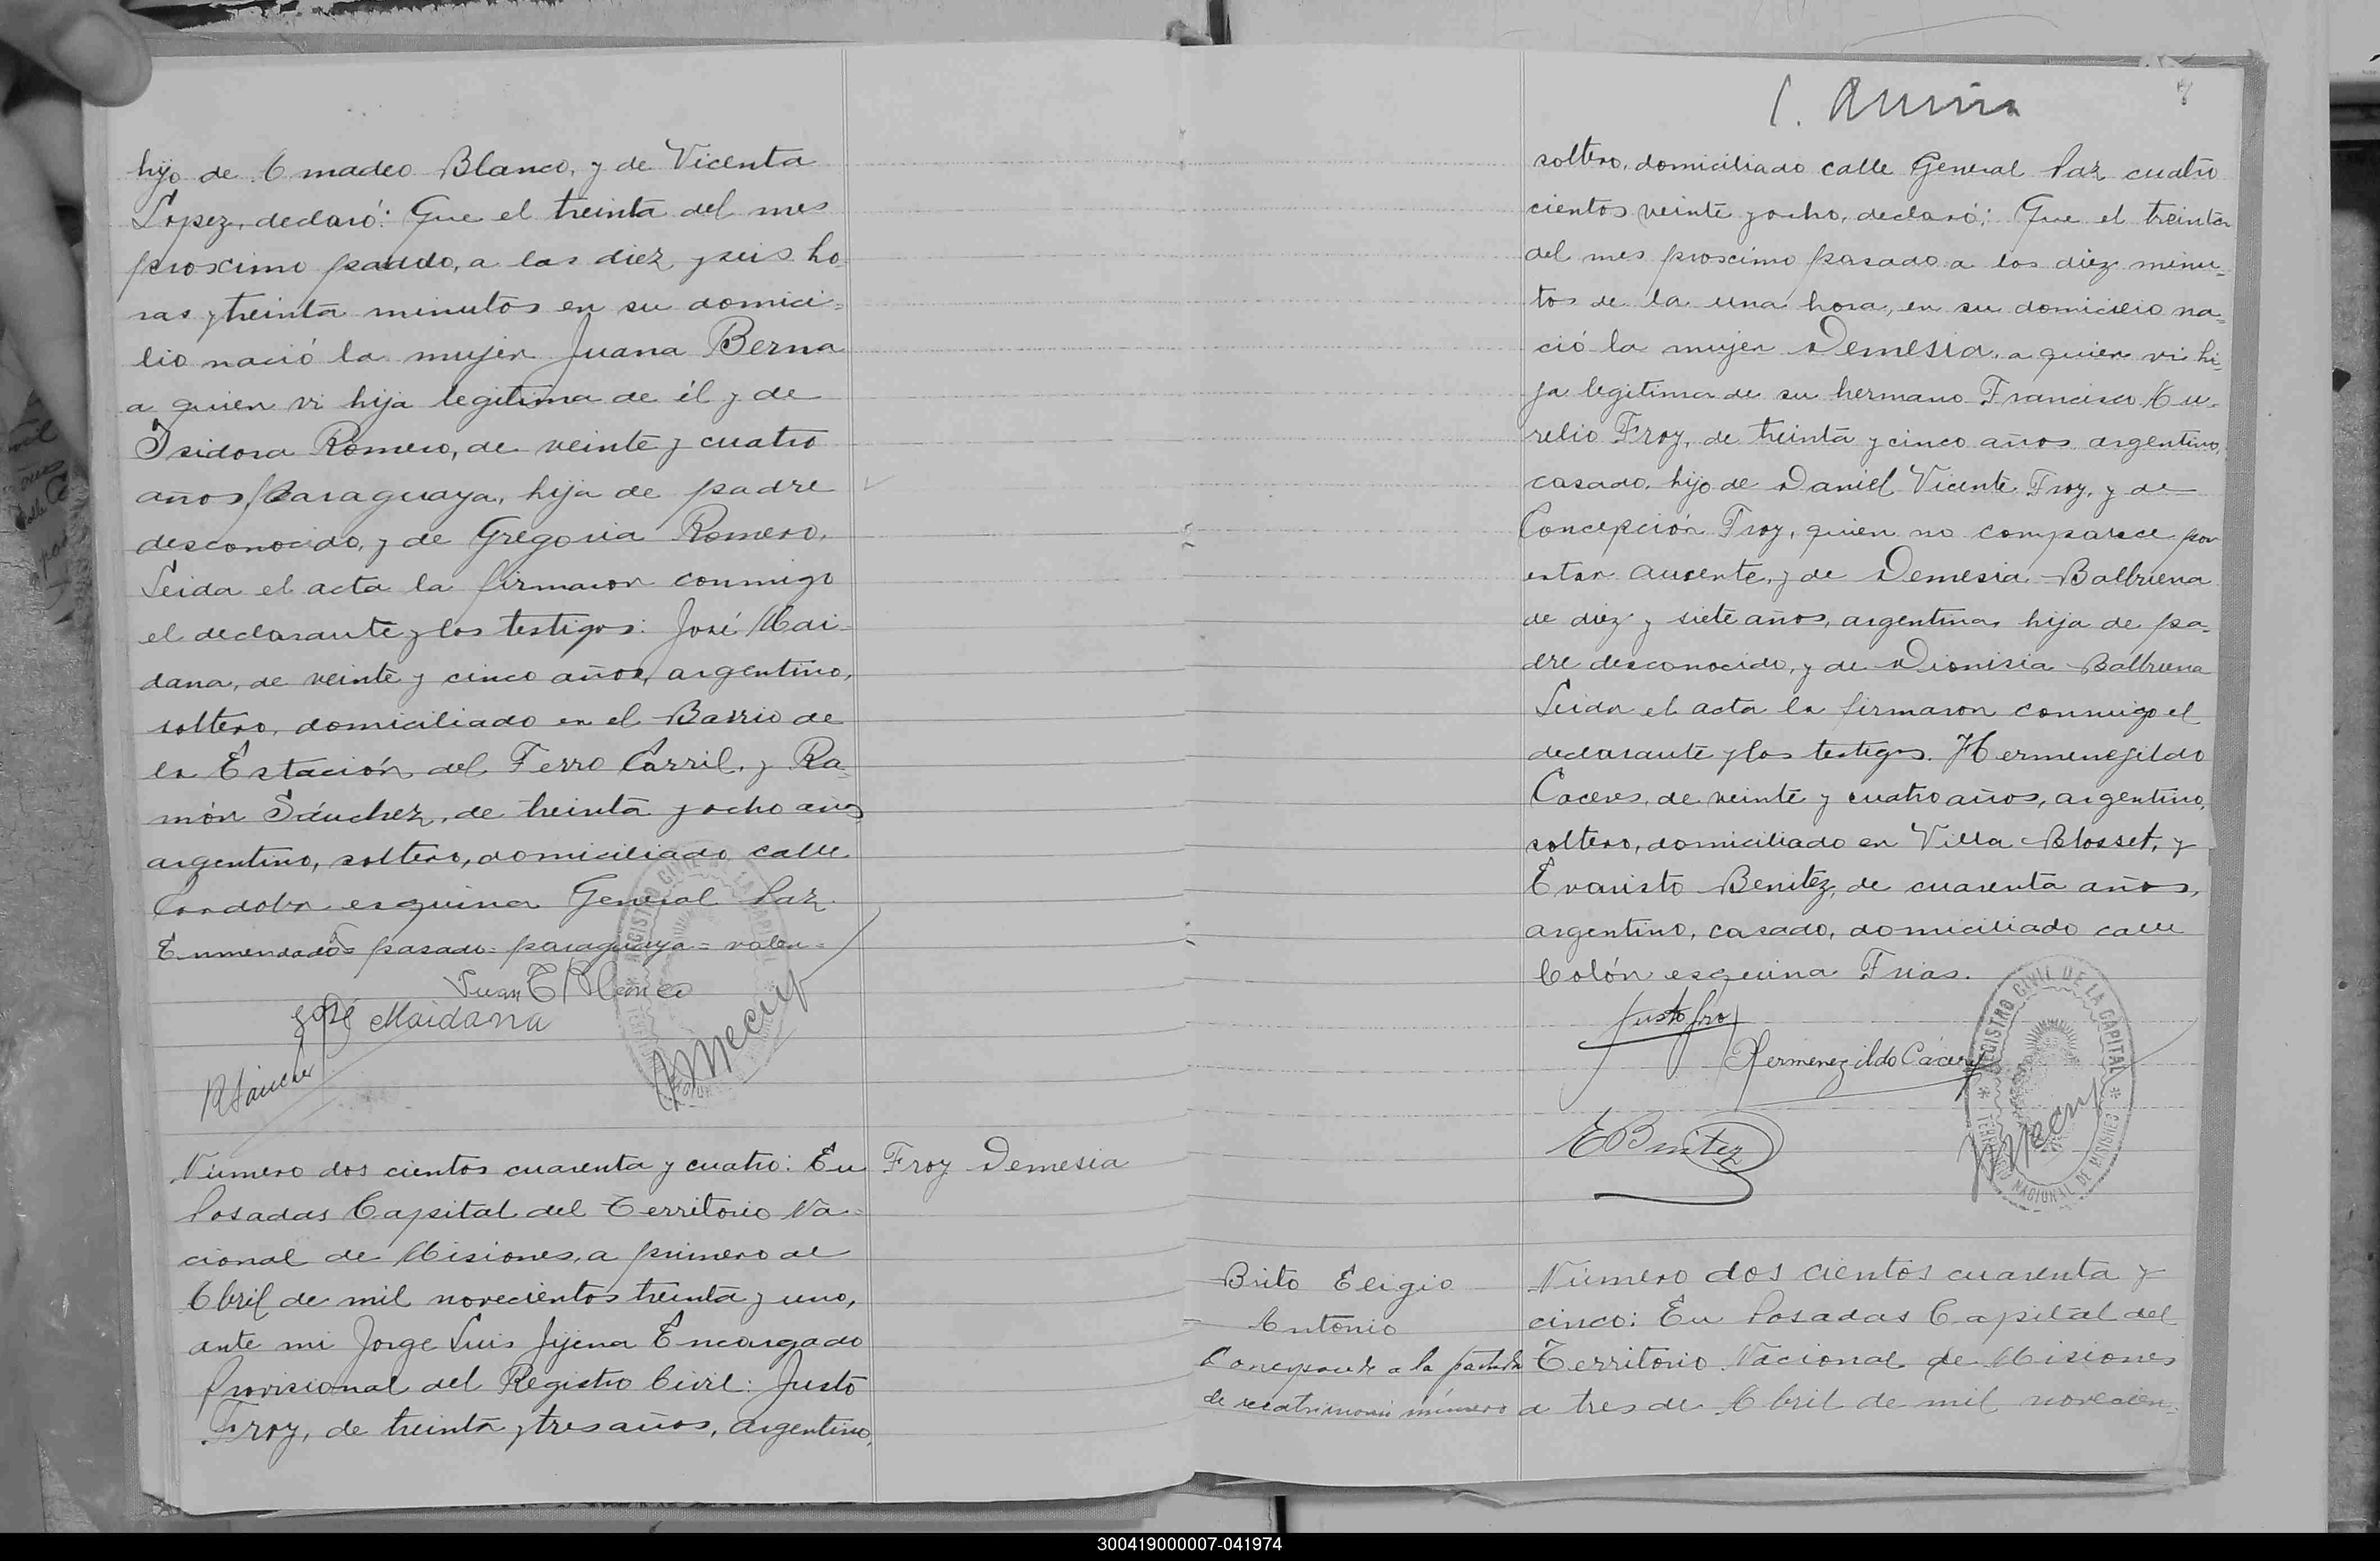 hijo de Amadeo Blanco, y de Vicenta
Lopez, declaró: Que el treinta del mes
proximo pasado, a las diez y seis ho-
ras y treinta minutos en su domici=
lio nació la mujer Juana Berna
a quien vi hija legitima de él y de
Isidora Romero, de veinte y cuatro
años, paraguaya, hija de padre
desconocido, y de Gregoria Romero.
Leida el acta la firmaron conmigo
el declarante y los testigos: José Mai-
dana, de veinte y cinco años, argentino,
soltero, domiciliado en el Barrio de
la Estación del Ferro Carril, y Ra-
món Sánchez, de treinta y ocho años
argentino, soltero, domiciliado calle
Cordoba esquina General Paz.
Enmendados= pasado= paraguaya= valen=
Juan T Blanco
José Maidana
RSánchez
REGISTRO CIVIL DE LA CAPITAL
Número dos cientos cuarenta y cuatro: En
Posadas Capital del Territorio Na=
cional de Misiones, a primero de
Abril de mil novecientos treinta y uno,
ante mi Jorge Luis Jijena Encargado
Provisional del Registro Civil: Justo
Froy, de treinta y tres años, argentino,
Froy Demesia
7
soltero, domiciliado calle General Paz cuatro
cientos veinte y ocho, declaró: Que el treinta
del mes proscimo pasado a los diez minu=
tos de la una hora, en su domicilio na=
ció la mujer Demesia, a quien vi hi-
ja legitima de su hermano Francisco Au-
relio Froy, de treinta y cinco años argentino,
casado, hijo de Daniel Vicente Froy, y de
Concepción Froy, quien no comparece por
estar ausente, y de Demesia Balbuena
de diez y siete años, argentina, hija de pa-
dre desconocido, y de Dionisia Balbuena
Leida el acta la firmaron conmigo el
declarante y los testigos. Hermenegildo
Caceres, de veinte y cuatro años, argentino,
soltero, domiciliado en Villa Blosset, y
Evaristo Benitez, de cuarenta años,
argentino, casado, domiciliado calle
Colón esquina Frias.
Justo Froy
Hermenezildo Cáceres
EBenitez
REGISTRO CIVIL DE LA CAPITAL
TERRITORIO NACIONAL DE MISIONES
Brito Eligio
Antonio
Corresponde a la partida
de matrimonio número
Número dos cientos cuarenta y
cinco: En Posadas Capital del
Territorio Nacional de Misiones
a tres de Abril de mil novecien=
300419000007-041974